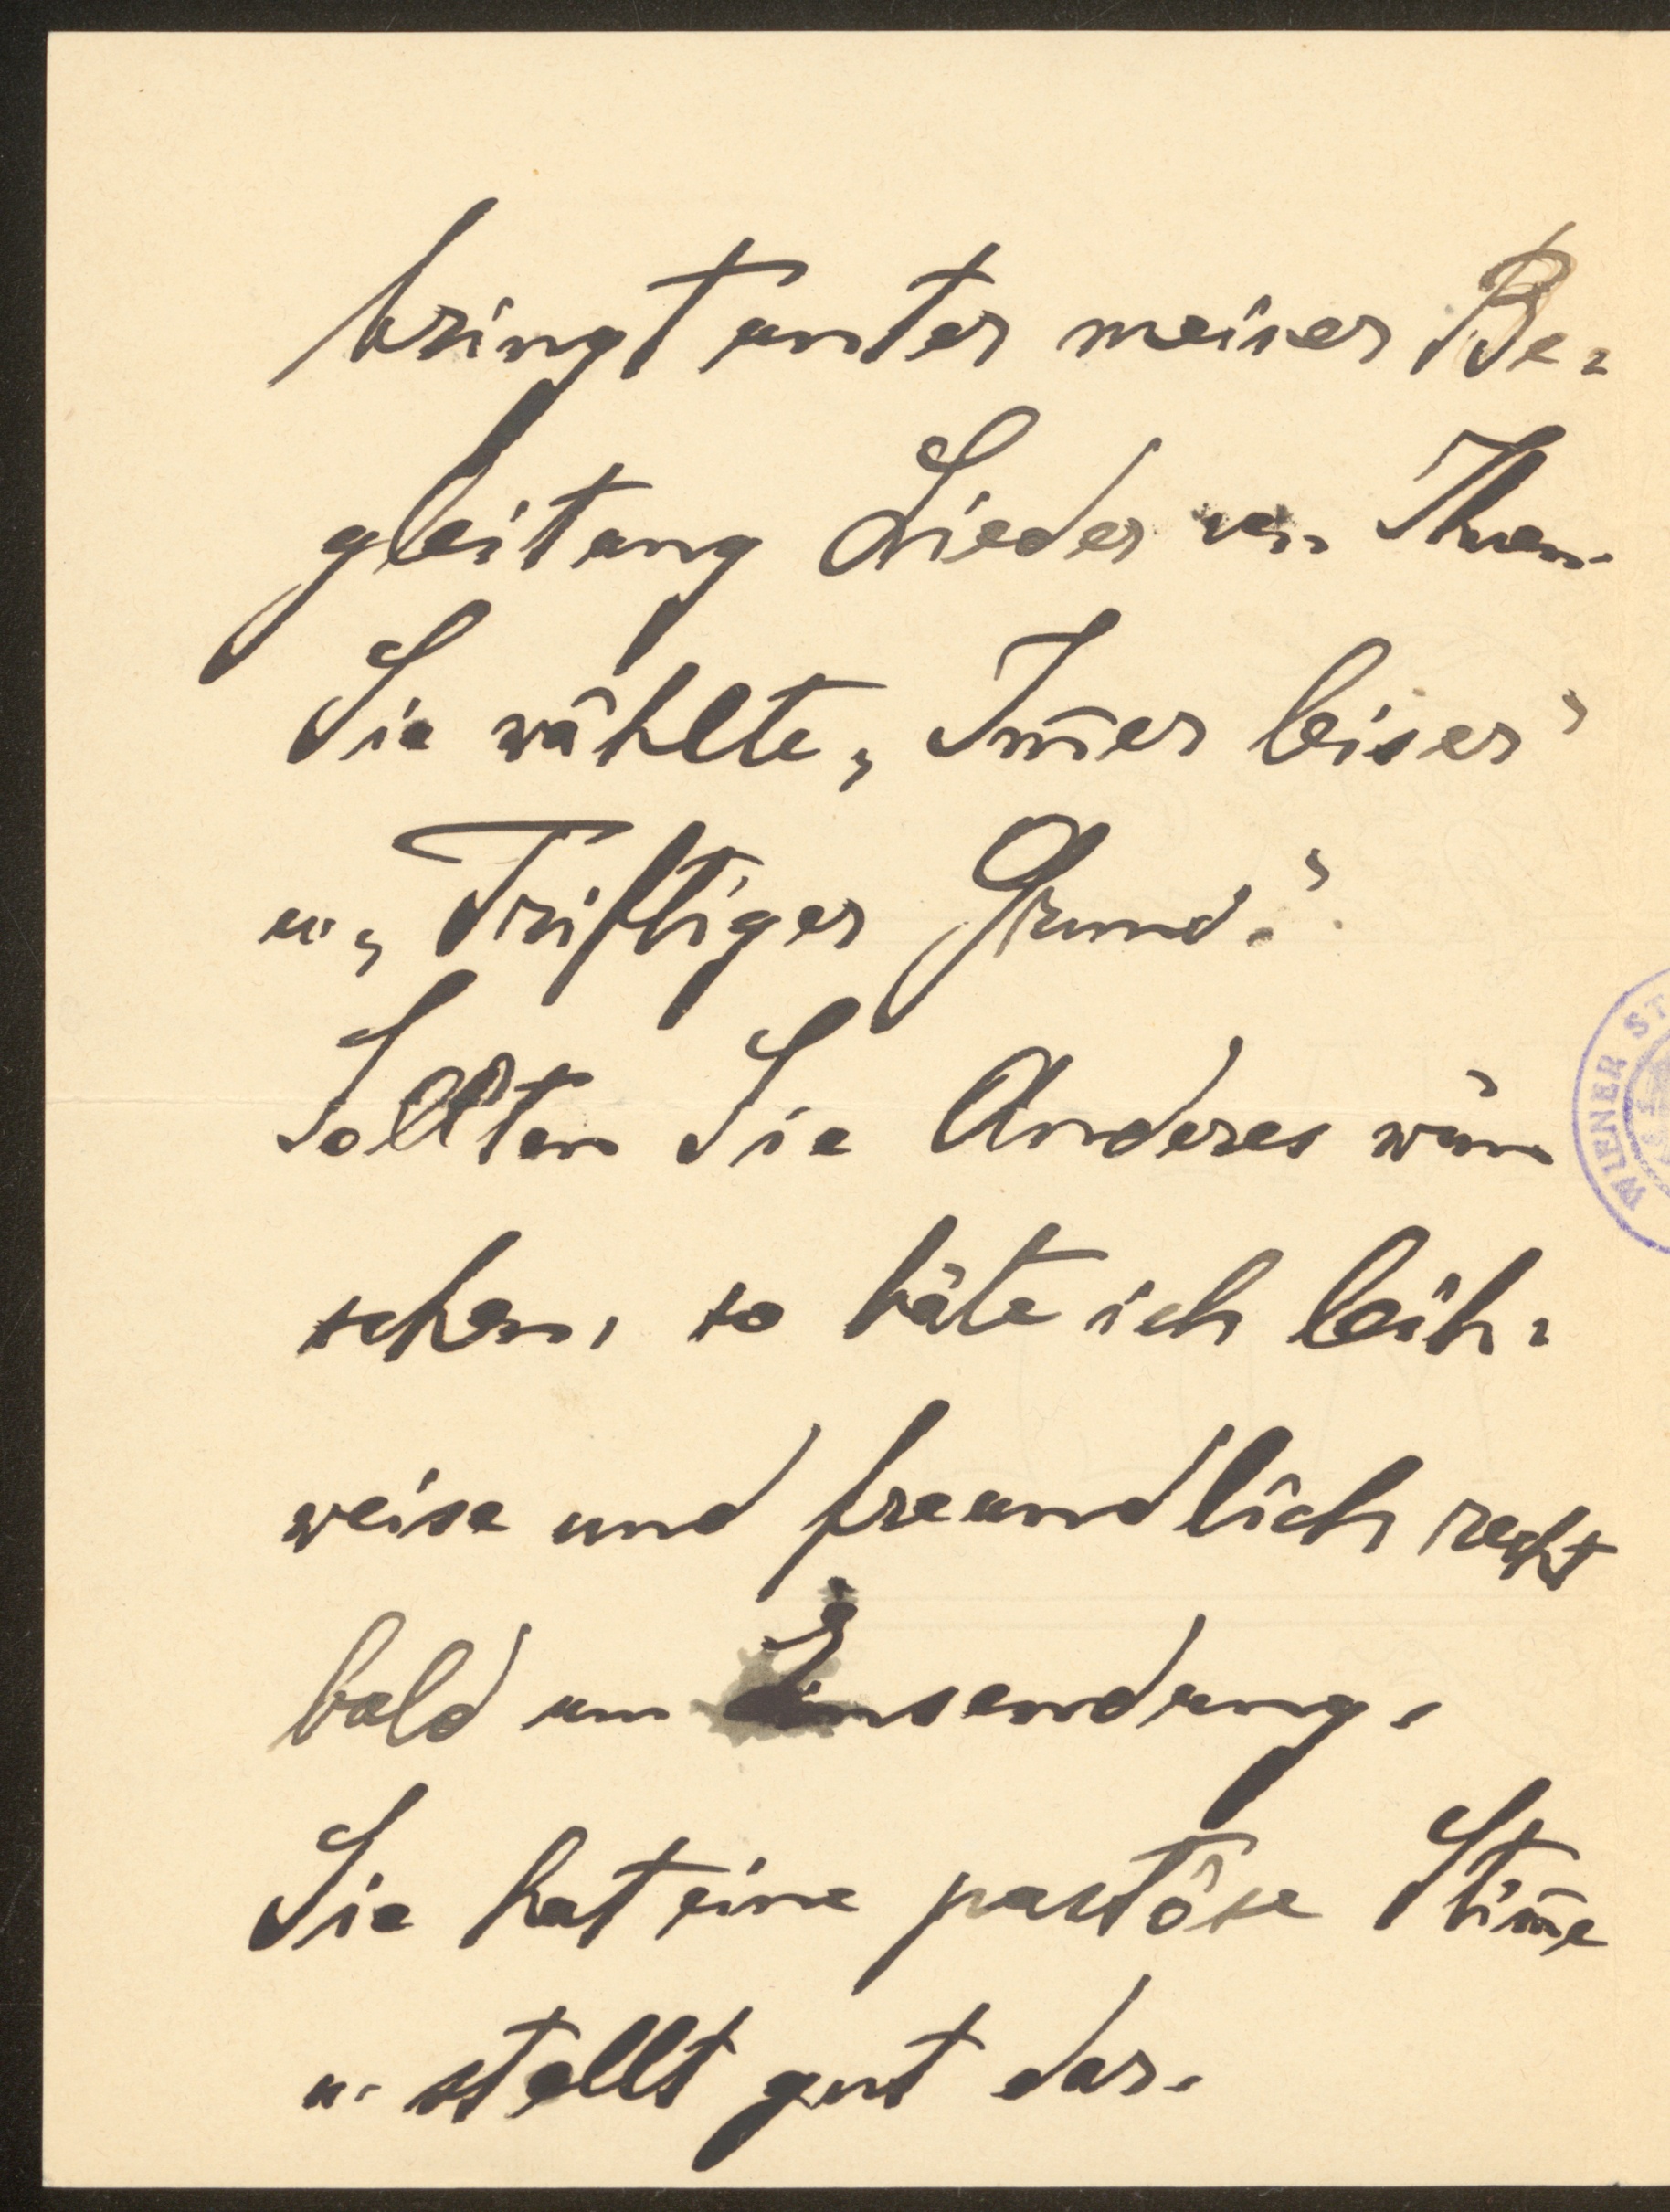 bringt unter meiner Be-
gleitung Lieder von Ihnen.
Sie wählte „Im̄er leiser"
u. „Triftiger Grund."
Sollten Sie Anderes wün
schen, so bäte ich leih-
weise und freundlich recht
bald um Einsendung.
Sie hat eine pastöse Stim̄e
u. stellt gut dar.
WIENER ST